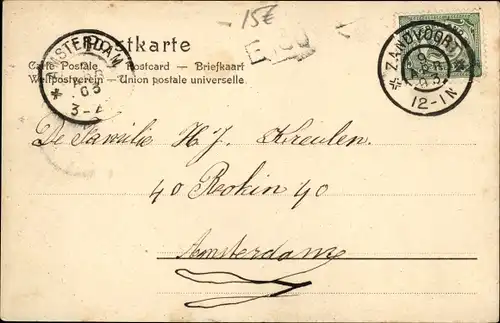 15€
Postkarte
Carte Postale – Postcard – Briefkaart
Weltpostverein – Union postale universelle.
AMSTERDAM
03
3-A
ZANDVOORT
03
12-1N
De Familie H. J. Kreulen.
40 Rokin 40
Amsterdam